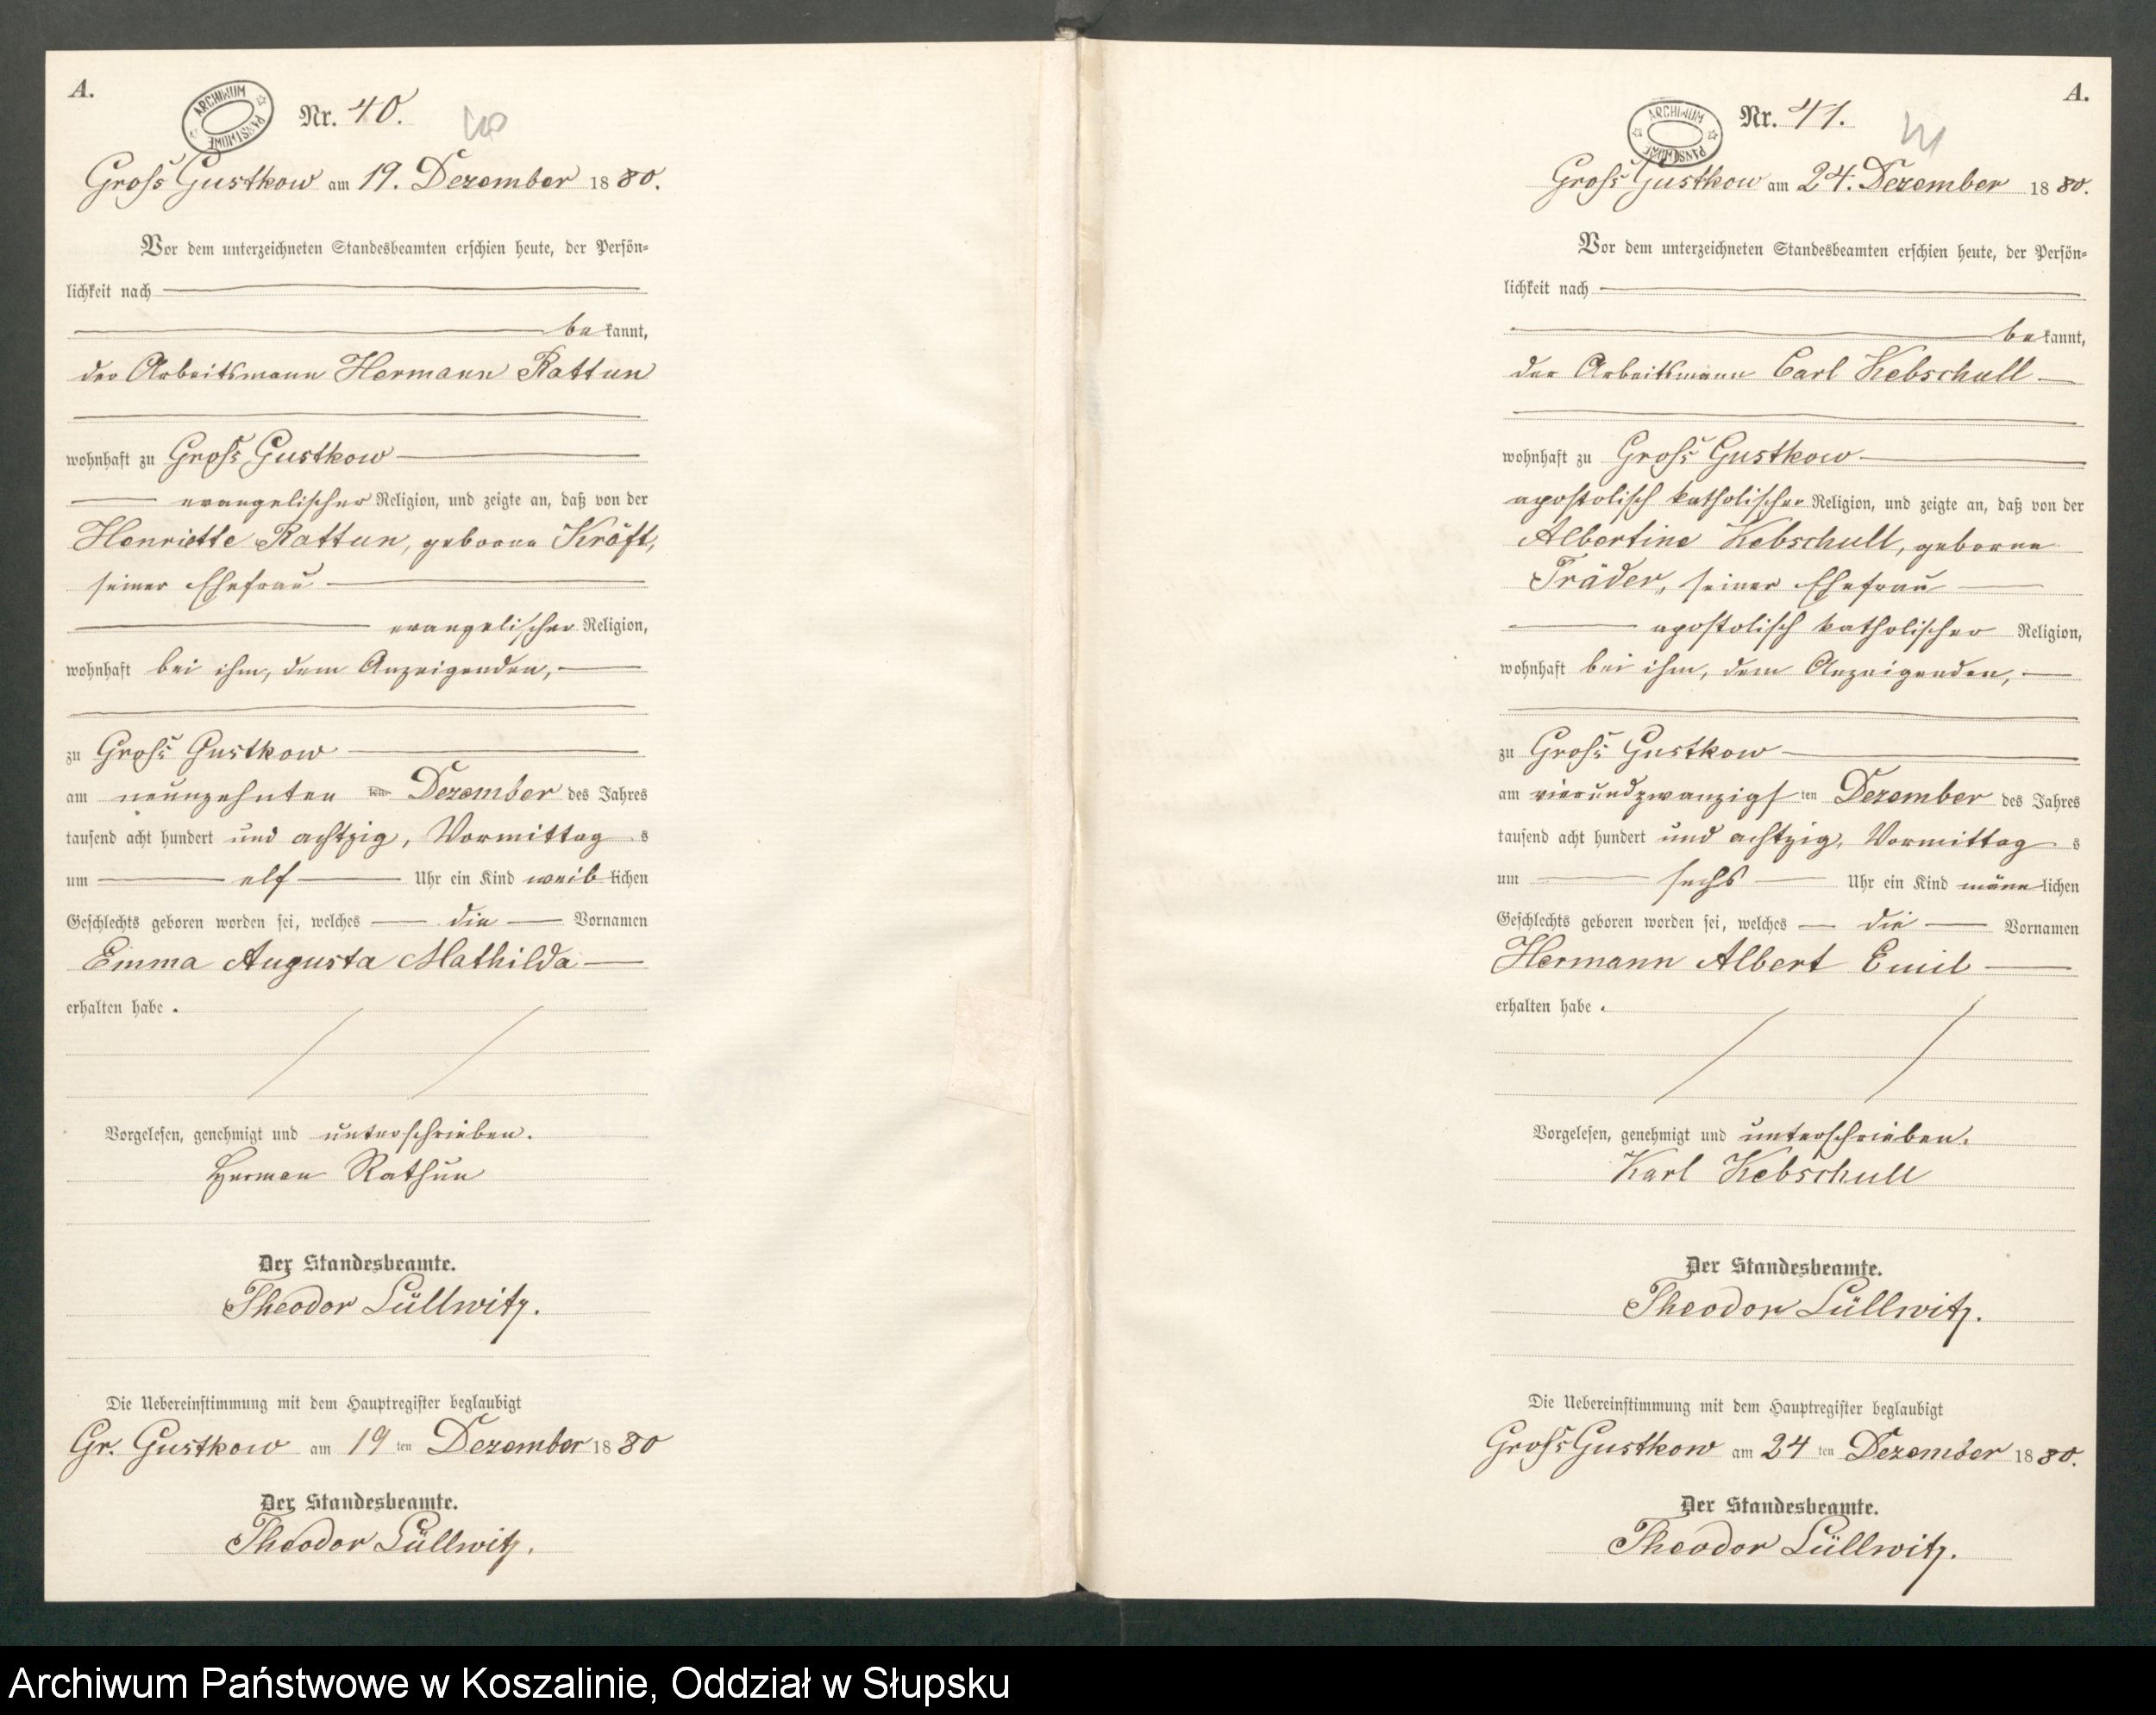 A.
ARCHIWUM PAŃSTWOWE
Nr. 40.
40
Gross Gustkow am 19. Dezember 1880.
Vor dem unterzeichneten Standesbeamten erschien heute, der Persön-
lichkeit nach
bekannt,
der Arbeitsmann Hermann Rattun
wohnhaft zu Gross Gustkow
evangelischer Religion, und zeigte an, daß von der
Henriette Rattun, geborne Kröft,
seiner Ehefrau
evangelischer Religion,
wohnhaft bei ihm, dem Anzeigenden,
zu Gross Gustkow
am neunzehnten ten Dezember des Jahres
tausend acht hundert und achtzig, Vormittags
um elf Uhr ein Kind weiblichen
Geschlechts geboren worden sei, welches die Vornamen
Emma Augusta Mathilda
erhalten habe.
Vorgelesen, genehmigt und unterschrieben.
Herman Rathun
Der Standesbeamte.
Theodor Lüllwitz.
Die Uebereinstimmung mit dem Hauptregister beglaubigt
Gr. Gustkow am 19ten Dezember 1880
Der Standesbeamte.
Theodor Lüllwitz.
A.
ARCHIWUM PAŃSTWOWE
Nr. 41.
41
Gross Gustkow am 24. Dezember 1880.
Vor dem unterzeichneten Standesbeamten erschien heute, der Persön-
lichkeit nach
bekannt,
der Arbeitsmann Carl Kebschull
wohnhaft zu Gross Gustkow
apostolisch katholischer Religion, und zeigte an, daß von der
Albertine Kebschull, geborne
Träder, seiner Ehefrau
apostolisch katholischer Religion,
wohnhaft bei ihm, dem Anzeigenden,
zu Gross Gustkow
am vierundzwanzigsten Dezember des Jahres
tausend acht hundert und achtzig, Vormittags
um sechs Uhr ein Kind männlichen
Geschlechts geboren worden sei, welches die Vornamen
Hermann Albert Emil
erhalten habe.
Vorgelesen, genehmigt und unterschrieben.
Karl Kebschull
Der Standesbeamte.
Theodor Lüllwitz.
Die Uebereinstimmung mit dem Hauptregister beglaubigt
Gross Gustkow am 24ten Dezember 1880.
Der Standesbeamte.
Theodor Lüllwitz.
Archiwum Państwowe w Koszalinie, Oddział w Słupsku